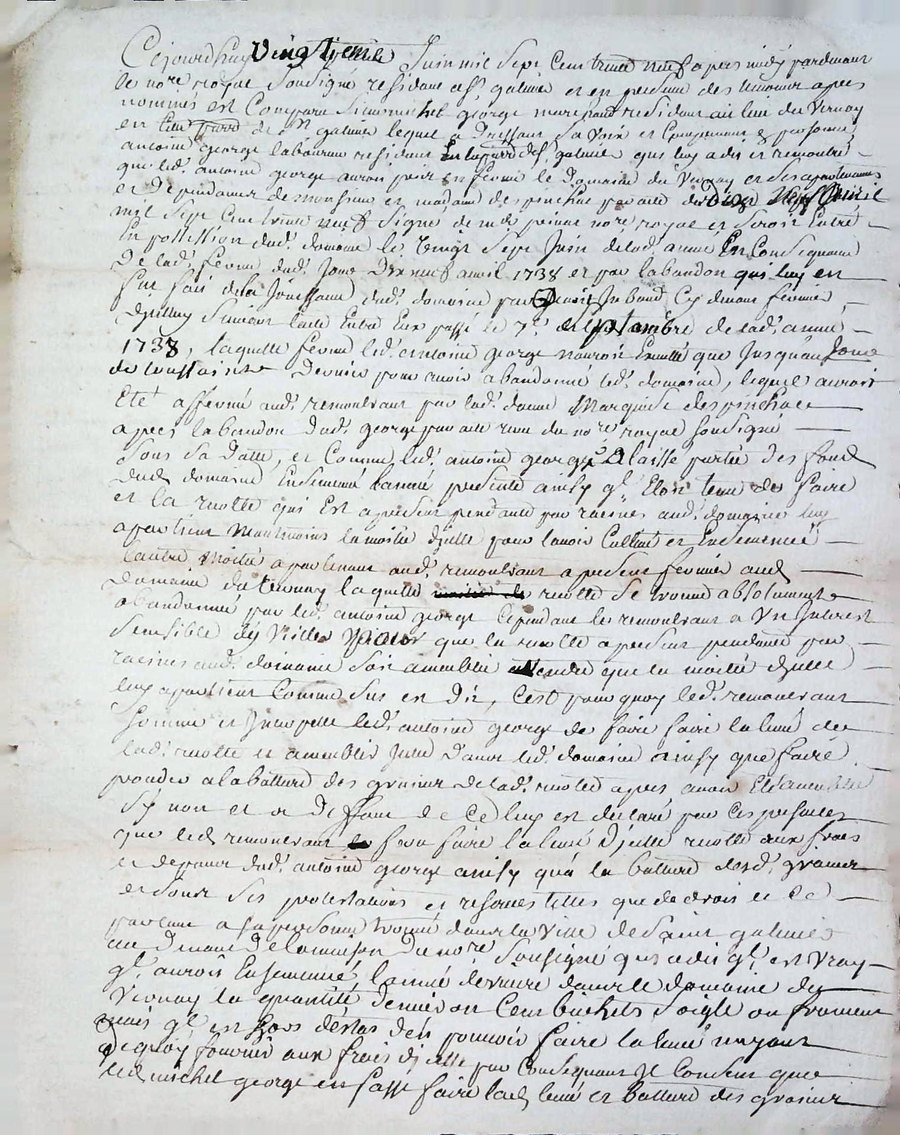 Cejourdhuy vingtieme Juin mil sept cent trente neuf apres midy pardevant
le nore royal sousigné residant a st galmier et en presence des temoins apres
nommés est comparu sieur michel george marchand residant au lieu du Vernay
en cette parroisse de st galmier lequel a dressant sa voix et comparement a personne
antoine george laboureur residant en la parr de st galmier qui luy a dit et remontré
que led. antoine george auroit pris en ferme le domaine du Vernay et ses apartenances
et dependances de monsieur et madame despinchac par acte du dix neuf avril
mil sept cent trente neuf signé de nore royal et seroit entré
en possession dud. domaine le vingt sept Juin de lad. année en consequance
de lad. ferme dud. Jour dix neuf avril 1738 et par labandon qui luy en
fut fait de la Jouissance dud. domaine par benoit cy devant fermier
dicelluy suivant lacte entre eux passé le 7e. septambre de lad. année
1738, laquelle ferme led. antoine george nauroit executé que Jusquau Jour
de toussaints dernier pour avoir abandonné led. domaine, lequel auroit
eté affermé aud. remontrant par lad. dame Marquise despinchac
apres labandon dud. george par acte recu du nore royal sousigné
sous sa datte, et comme led. antoine george a laissé partie des fonds
dud. domaine ensemencé lannée presente ainsy ql. etoit tenu de faire
et la recolte qui est apresent pendante par racines aud. domaine luy
apartient neantmoins la moitié dicelle pour lavoir cultivé et ensemencé
lautre moitié apartenant aud. remontrant apresent fermier aud.
domaine du vernay laquelle recolte se trouve absolument
abandonnée par led. antoine george cependant le remontrant a un Interest
sensible dy veiller pour que la recolte apresent pendante par
racines aud. domaine soit ameublie attendu que la moitié dicelle
luy apartient comme sus est dit, cest pourquoy led. remontrant
somme et Interpelle led. antoine george de faire faire la levé de
lad. recolte et ameublir Icelle dans led. domaine ainsy que faire
proceder a la batture des grains de lad. recolte apres avoir eté ameublie
sy non et a deffaut de ce luy est declaré par ces presentes
que led. remontrant fera faire la levé dicelle recolte aux frais
et depens dud. antoine george ainsy que la batture desd. grains
et sous ses protestations et reserves telles que de droit et ce
parlant a sa personne trouvé dans la ville de saint galmier
au devant de la maison du nore. sousigné qui a dit ql. est vray
ql. auroit ensemencé lannée derniere dans le domaine du
Vernay la quantité denviron cent bichets soigle ou froment
mais ql. est hors destat den pouvoir faire la levé nayant
dequoy fournir aux frais dicelle par consequant Il consent que
led. michel george en fasse faire lad. levé et batture des grains